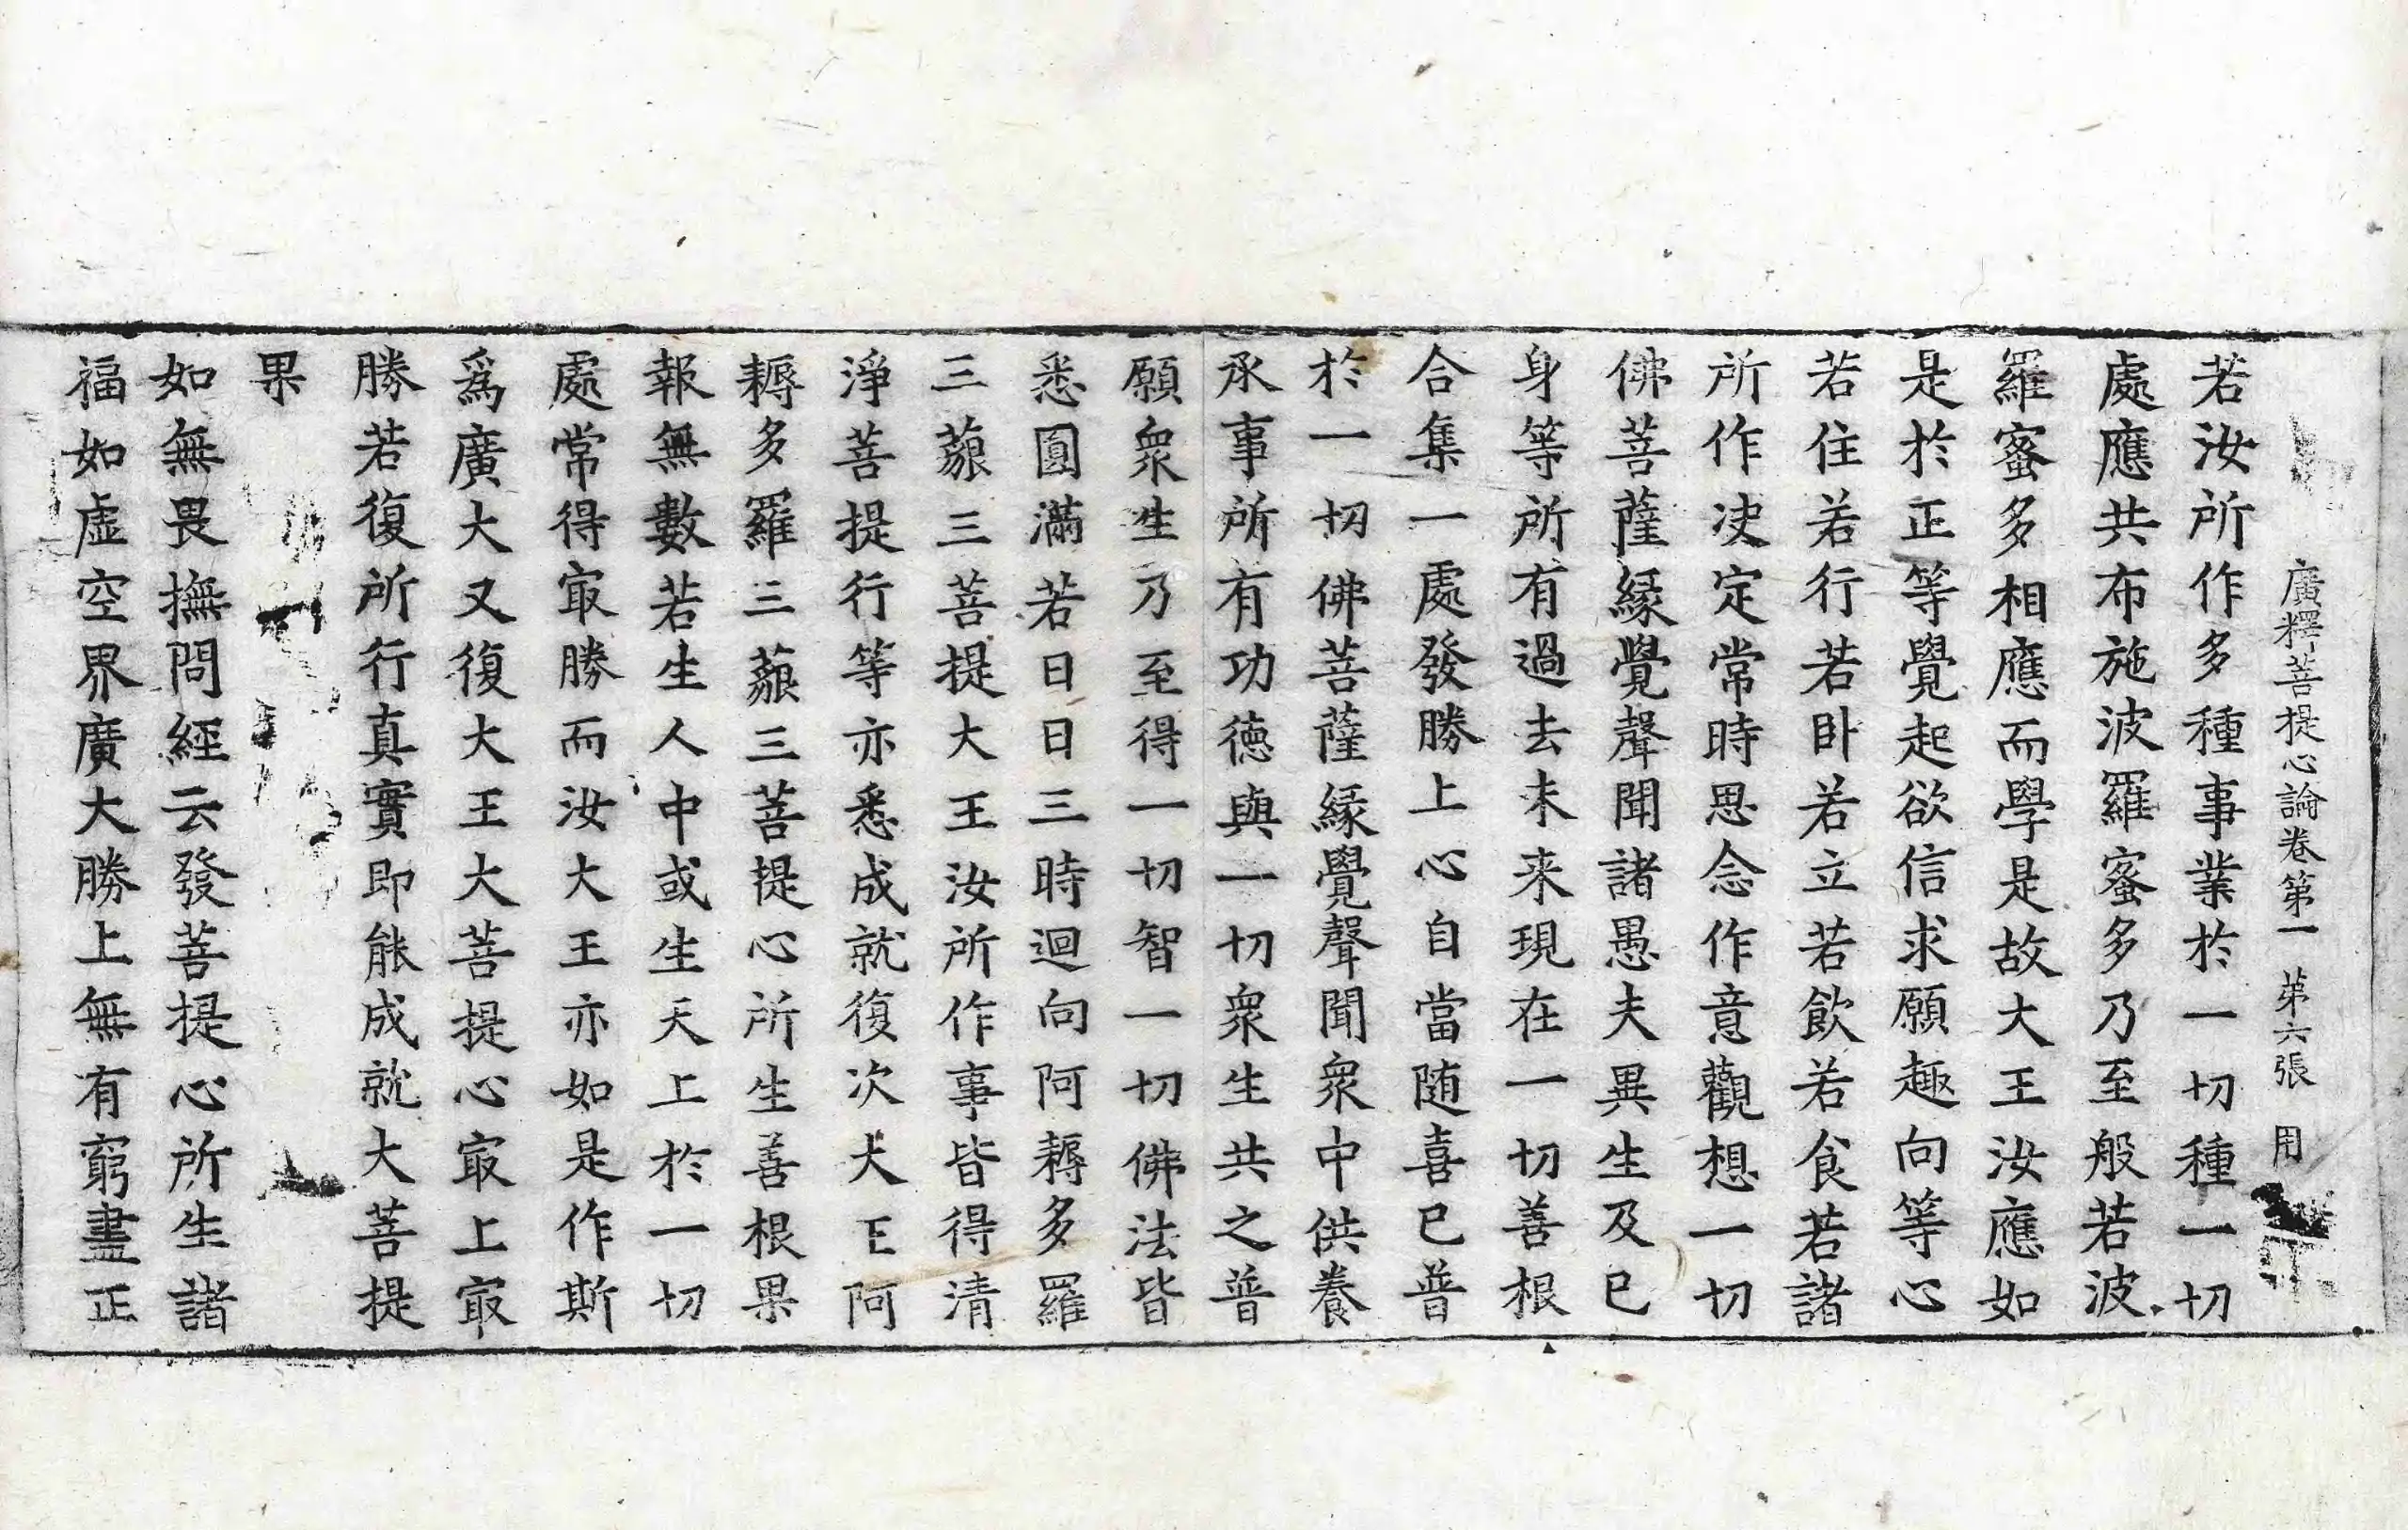 廣釋菩提心論卷第一　第六張　用
若汝所作多種事業於一切種一切
處應共布施波羅蜜多乃至般若波
羅蜜多相應而學是故大王汝應如
是於正等覺起欲信求願趣向等心
若住若行若卧若立若飲若食若諸
所作决定常時思念作意觀想一切
佛菩薩緣覺聲聞諸愚夫異生及已
身等所有過去未来現在一切善根
合集一處發勝上心自當随喜已普
於一切佛菩薩緣覺聲聞衆中供養
承事所有功德與一切衆生共之普
願衆生乃至得一切智一切佛法皆
悉圓滿若日日三時迴向阿耨多羅
三藐三菩提大王汝所作事皆得清
淨菩提行等亦悉成就復次大王阿
耨多羅三藐三菩提心所生善根果
報無數若生人中或生天上於一切
處常得㝡勝而汝大王亦如是作斯
爲廣大又復大王大菩提心㝡上㝡
勝若復所行真實即能成就大菩提
果
如無畏撫問經云發菩提心所生諸
福如虛空界廣大勝上無有窮盡正